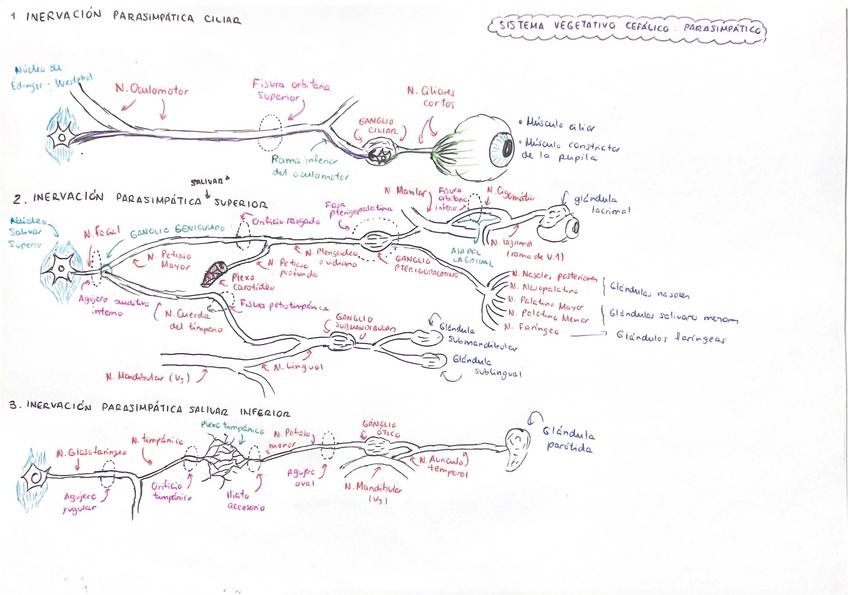 1 INERVACIÓN PARASIMPÁTICA CILIAR
SISTEMA VEGETATIVO CEFÁLICO: PARASIMPÁTICO
Núcleo de
Edinger-Westphal
N. Oculomotor
Fisura orbitaria
superior
GANGLIO
CILIAR
N. Ciliares
cortos
Rama inferior
del oculomotor
• Músculo ciliar
• Músculo constrictor
de la pupila
SALIVAR
2. INERVACIÓN PARASIMPÁTICA SUPERIOR
Núcleo
Salivar
Superior
N. Facial
GANGLIO GENICULADO
N. Petroso
Mayor
Orificio rasgado
Fosa
pterigopalatina
N. Maxilar
Fisura
orbitaria
inferior
N. Cigomático
glándula
lacrimal
N. lagrimal
(rama de V.1)
ASA DEL
LAGRIMAL
GANGLIO
PTERIGOPALATINO
N. Petroso
profundo
Plexo
carotídeo
Agujero auditivo
interno
N. Cuerda
del tímpano
Fisura petrotimpánica
N. Nasales posteriores
N. Nasopalatino
N. Palatino Mayor
N. Palatino Menor
N. Faríngeo
Glándulas nasales
Glándulas salivares menores
Glándulas faríngeas
GANGLIO
SUBMANDIBULAR
Glándula
submandibular
Glándula
sublingual
N. Lingual
N. Mandibular (V3)
3. INERVACIÓN PARASIMPÁTICA SALIVAR INFERIOR
N. Glosofaríngeo
N. timpánico
Plexo timpánico
N. Petroso
menor
GANGLIO
ÓTICO
Glándula
parótida
Agujero
yugular
Orificio
timpánico
Hiato
accesorio
Agujero
oval
N. Mandibular
(V3)
N. Aurículo
temporal